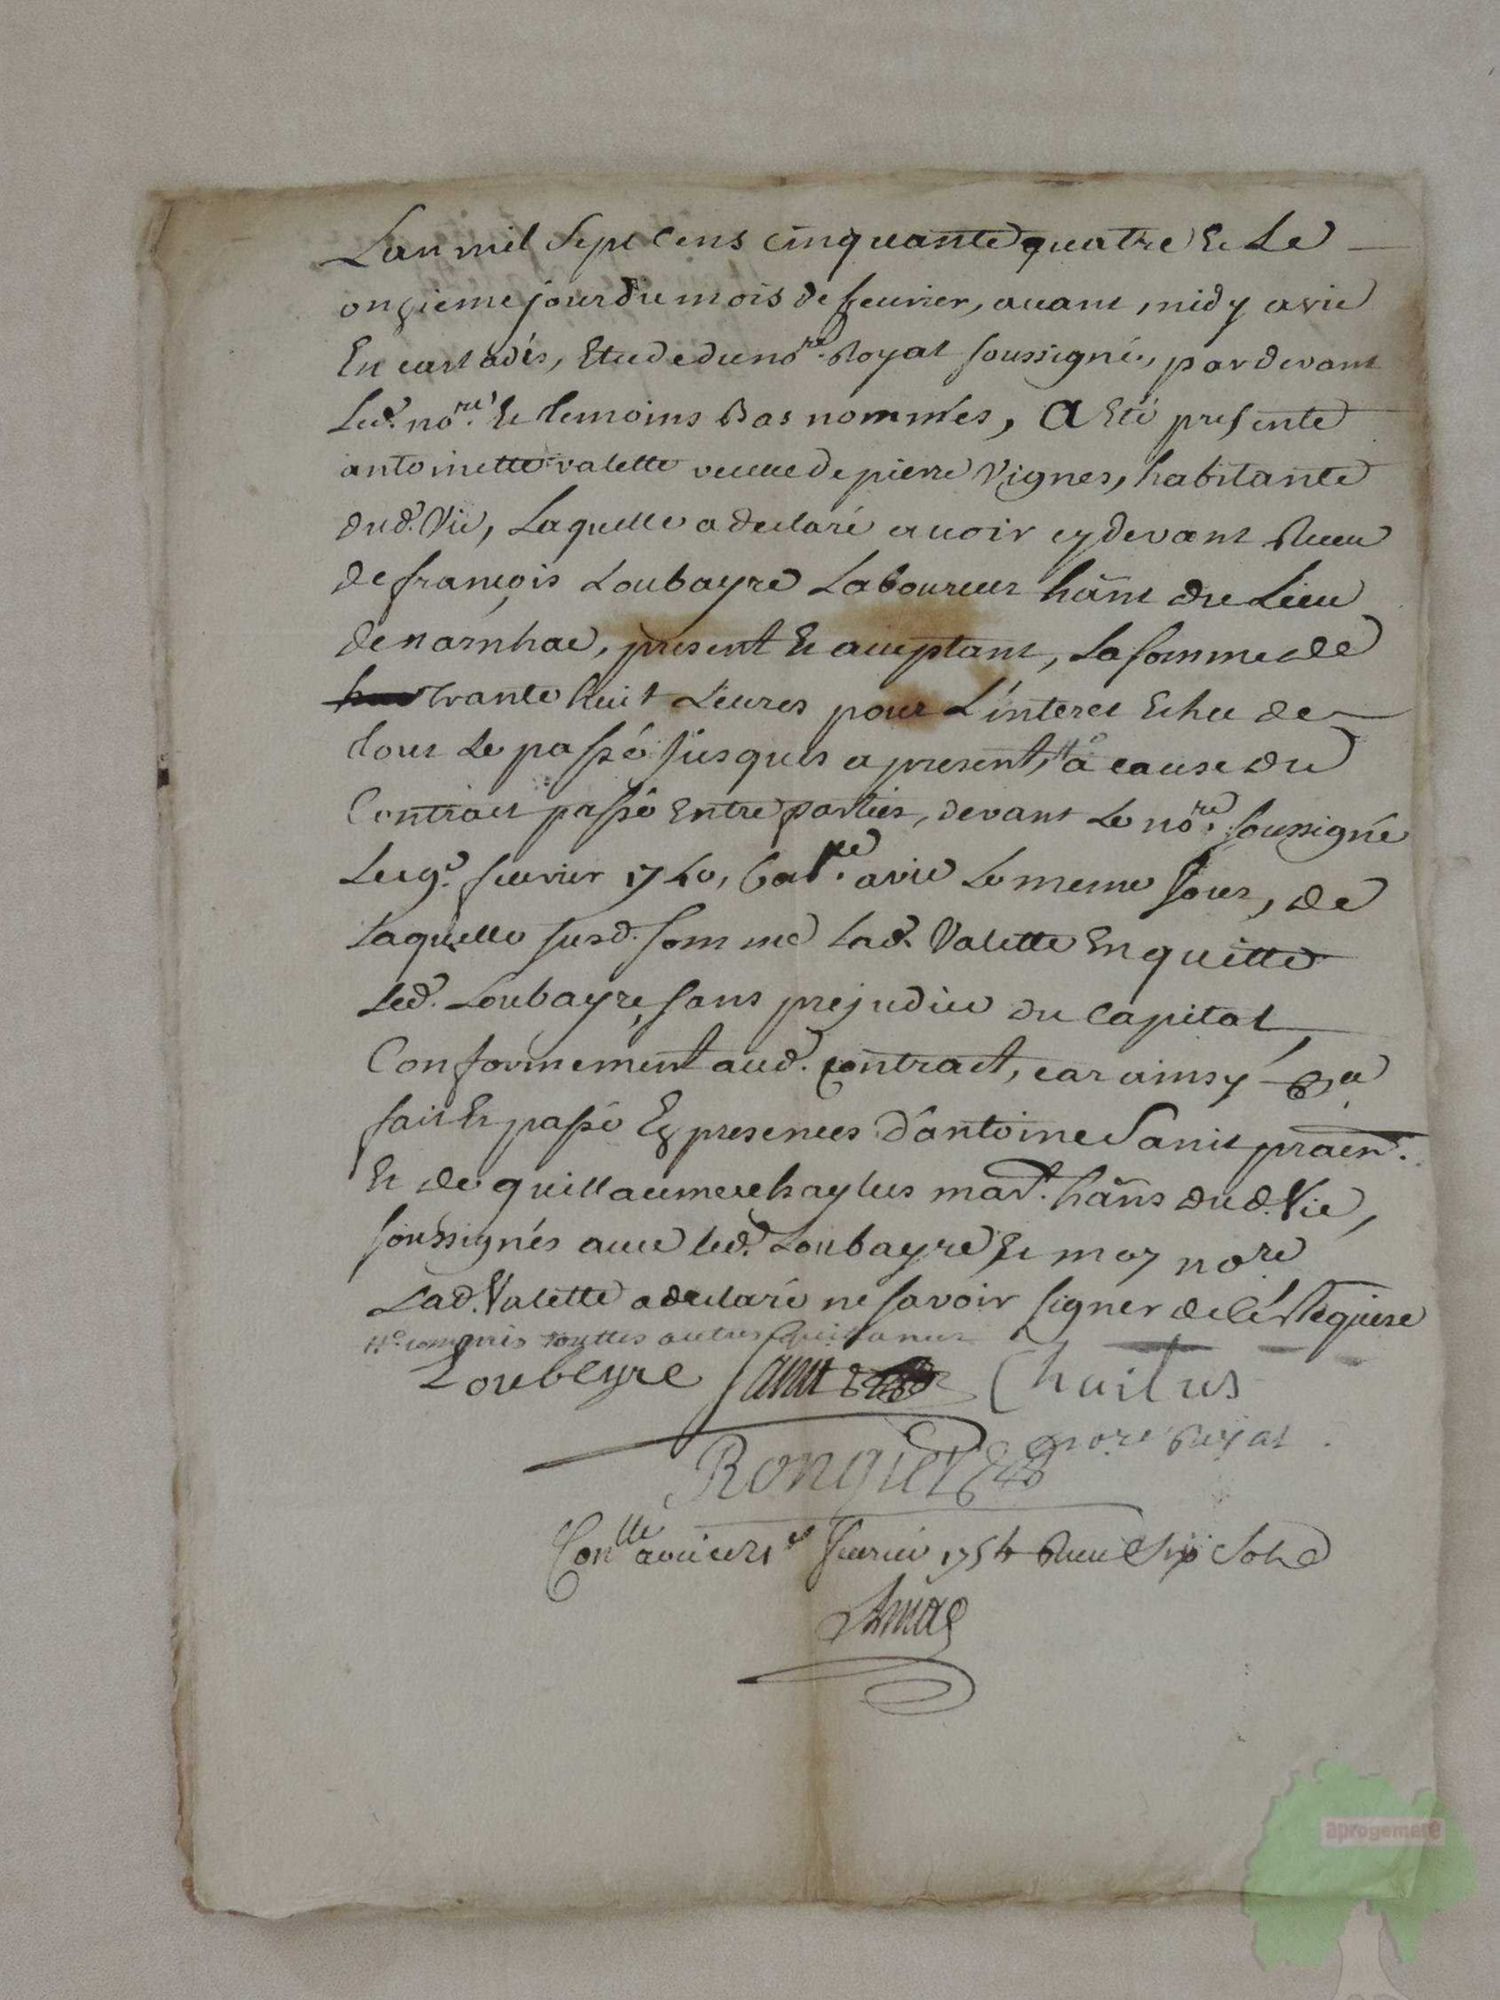 Lan mil sept cens cinquante quatre et Le
onzieme jour du mois de feuvrier, avant midy a vic
En carladés, Etude du nore. Royal soussigné, pardevant
Led. nore. Et temoins Bas nommés, A Eté presente
antoinette valette veuve de pierre Vignes, habitante
dud. Vic, Laquelle a declaré avoir cydevant Receu
de françois Loubayre Laboureur hant du Lieu
de narnhac, present et acceptant, La somme de
trante huit Livres pour L'interet Echu de
tout Le passé jusques a present, #a cause du
Contract passé Entre parties, devant Le nore. soussigné
Le 9e. feuvrier 1740, a vic Le meme jour, de
Laquelle susd. somme Lad. Valette En quitte
Led. Loubayre, sans prejudice du Capital
Conformement aud. contract, car ainsy
fait Et passé Ez presences d'antoine Sanit praen.
Et de guillaume chaylus mart. hans dud. Vic,
soussignés avec led. Loubayre Et moy nore
Lad. Valette a declaré ne savoir signer de ce Requise
#compris touttes autres quittances
Loubeyre Sanit Chailus
Rongier nore Royal.
Conlle a vic ce 21e feuvrier 1754 Receu Six Sols